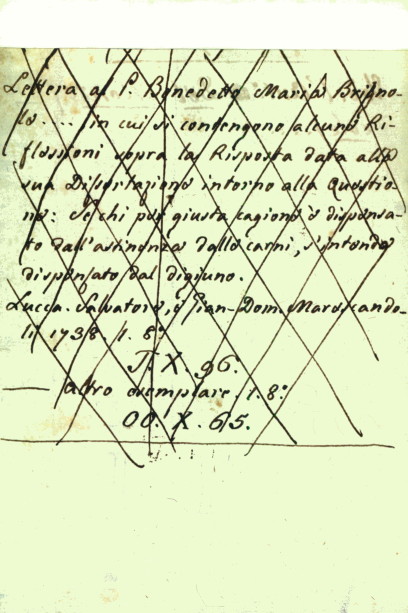 Lettera al P. Benedetto Maria Brigno-
lo .... in cui si contengono alcune Ri-
flessioni sopra la Risposta data alla
sua Dissertazione intorno alla Questio-
ne: Se chi per giusta cagione è dispensa-
to dall'astinenza dalle carni, s'intenda
dispensato dal digiuno.
Lucca. Salvatore, e Gian-Dom. Marescando-
li 1738. f. 8º
T. X. 96.
—— altro esemplare. f. 8º
OO. X. 65.